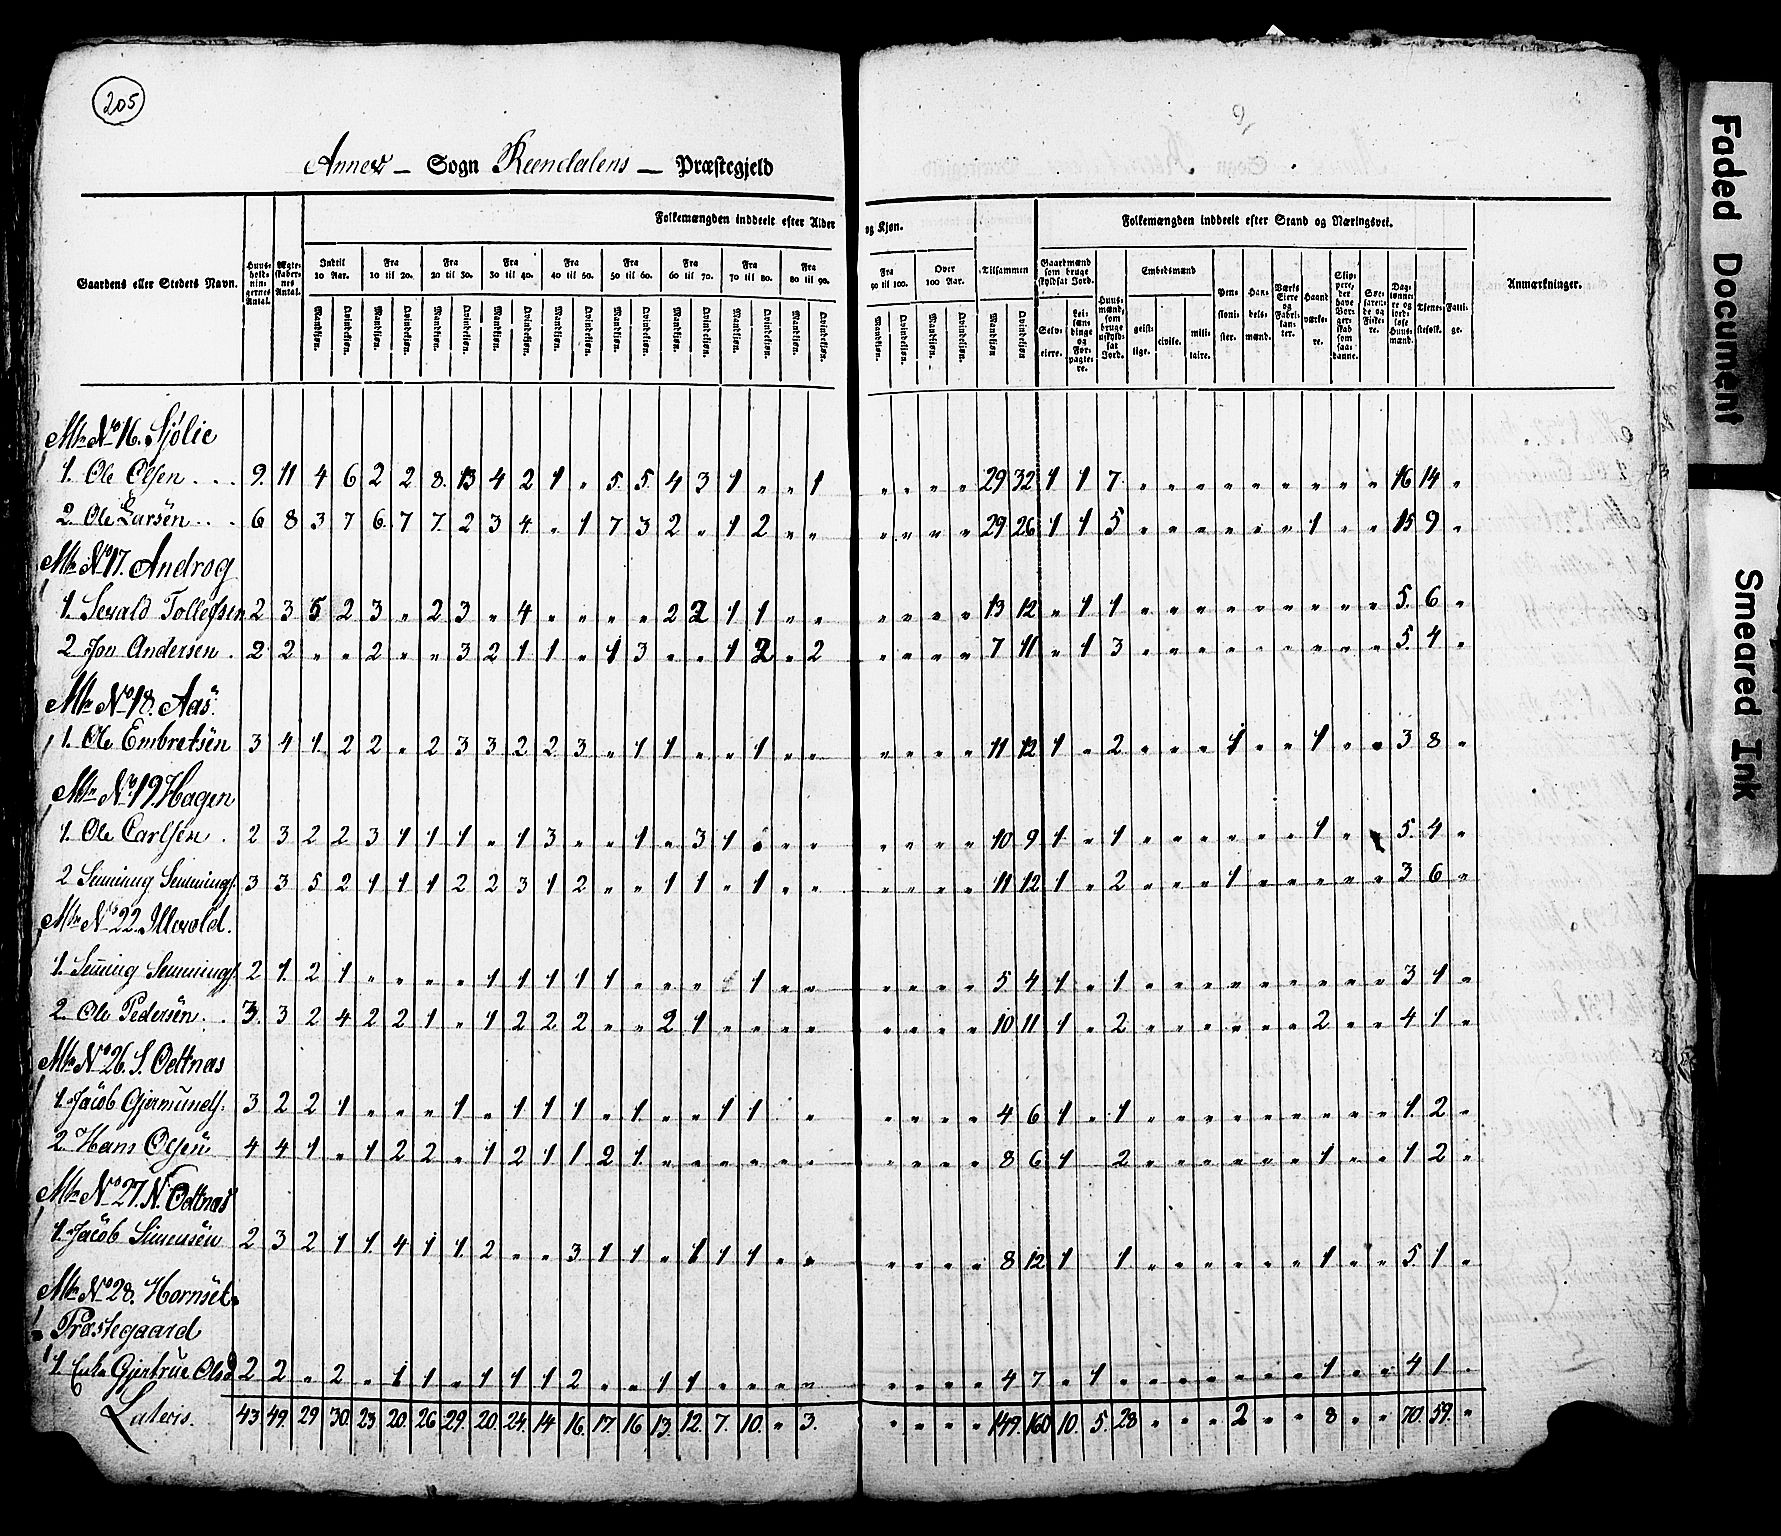 205
Annex – Sogn Reendalens – Præstegjeld
Folkemængden inddeelt efter Alder og Kjøn.
Folkemængden inddeelt efter Stand og Næringsvei.
Gaardens eller Stedets Navn.
Huus-holdnin-gernes Antal.
Ægte-skaber-nes Antal.
Indtil 10 Aar.
Fra 10 til 20.
Fra 20 til 30.
Fra 30 til 40.
Fra 40 til 50.
Fra 50 til 60.
Fra 60 til 70.
Fra 70 til 80.
Fra 80 til 90.
Fra 90 til 100.
Over 100 Aar.
Tilsammen
Gaardmænd som bruge skyldsat Jord.
Huus-mænd, som bruge uskyld-sat Jord.
Embedsmænd
Pen-sioni-ster.
Han-dels-mænd.
Værks Eiere og Fabri-kan-ter.
Haand-værke-re.
Skip-pere, der have Bor-ger-skab som saa-danne.
Søe-farende og Fiske-re.
Dag-lønne-re og jord-løse Huus-mænd.
Tjene-stefolk.
Fatti-ge.
Anmærkninger.
Mandkiøn. Qvindekiøn. Mandkiøn. Qvindekiøn. Mandkiøn. Qvindekiøn. Mandkiøn. Qvindekiøn. Mandkiøn. Qvindekiøn. Mandkiøn. Qvindekiøn. Mandkiøn. Qvindekiøn. Mandkiøn. Qvindekiøn. Mandkiøn. Qvindekiøn. Mandkiøn. Qvindekiøn. Mandkiøn. Qvindekiøn. Mandkiøn Qvindekiøn
Selv-eiere. Lei-læn-dinge og For-pagte-re. geist-lige. civile. mili-taire.
Mtr No 16. Sjølie
1. Ole Olsen . . . 9. 11 4 6 2 2 8. 13 4 2 1 „ 5. 5. 4 3 1 „ „ 1 „ „ „ „ 29 32 1 1 7 „ „ „ „ „ „ „ „ „ 16 14 „
2. Ole Larsen . . . 6 8 3 7 6. 7 7. 2 3 4 „ 1 7 3 2 „ 1 2 „ „ „ „ „ „ 29 26 1 1 5 „ „ „ „ „ „ 1 „ „ 15 9 „
Mtr No 17. Androg
1. Sevald Tollefsen 2 3 5 2 3 „ 2 3 „ 4 „ „ „ „ 2 2 1 1 „ „ „ „ „ „ 13 12 „ 1 1 „ „ „ „ „ „ „ „ „ 5. 6 „
2 Jon Andersen . 2 2 „ „ 2 „ „ 3 2 1 1 „ 1 3 „ „ 1 2 „ 2 „ „ „ „ 7 11 „ 1 3 „ „ „ „ „ „ „ „ „ 5. 4 „
Mtr No 18. Aas.
1. Ole Embretsen 3 4 1. 2 2 „ 2 3 3 2 2 3 „ 1 1 „ „ 1 „ „ „ „ „ „ 11 12 1 „ 2 „ „ „ 1 „ „ 1 „ „ 3 8 „
Mtr No 19 Hagen
1. Ole Carlsen . 2 3 2 2 3 1 1 1 „ 1 3 „ „ 1 „ 3 1 „ „ „ „ „ „ „ 10 9 1 „ 1 „ „ „ „ „ „ 1 „ 5. 4 „
2 Semming Semmings. 3 3 5 2 1 1 1 2 2 3 1 2 „ „ 1 1 „ 1 „ „ „ „ „ „ 11 12 1 „ 2 „ „ „ 1 „ „ „ „ „ 3 6 „
Mtr No 22. Illevold.
1. Seming Semmings. 2 1. 2 1 „ „ „ „ 1 1 1 1 1 „ „ „ 1 „ „ „ „ „ „ 5 4 1 „ 1 „ „ „ „ „ „ „ „ „ 3 1 „
2. Ole Pedersen . . 3. 3 2 4 2 2 1 „ 1 2 2 2 „ „ 2 1 „ „ „ „ „ „ „ „ 10 11 1 „ 2 „ „ „ „ „ „ 2 „ „ 4 1 „
Mtr No 26. S. Oettnas
1. Jacob Gjermunds. 3 2 2 1 „ „ „ 1 „ 1 1 1 „ 1 „ „ 1 1 „ „ „ „ „ 4 6 1 „ 1 „ „ „ „ „ „ „ „ „ 1 2 „
2. Hans Olsen 4 4 1 „ 1 2 2 „ 1 2 1 1 2 1 „ „ „ „ „ „ „ „ „ „ 8 6 1 2 „ „ „ „ „ „ 1 „ „ 1 2 „
Mtr No 27. N. Oettnas
1. Jacob Simensen 2 3 2 1 1 4 1 1 2 „ „ 3 1 1 „ 1 1 1 „ „ „ „ „ „ 8 12 1 1 „ „ „ „ „ „ 1 „ „ 5. 1 „
Mtr No 28. Hornset.
Præstegaard
1. Enke Gjertrue Olsd 2 2 „ 2 „ 1 1 „ 1 1 1 2 „ „ 1 1 „ „ „ „ „ „ „ „ 4 7 „ 1 „ „ „ „ „ „ „ 1 „ „ 4 1 „
Lateris. 43. 49. 29 30. 23 20. 26 29. 20. 24. 14 16. 17. 16 13. 12. 7. 10. „ 3. „ „ „ „ 149. 160 10. 5. 28 „ „ „ 2 „ „ 8 „ „ 70. 59. „
Faded Document
Smeared Ink